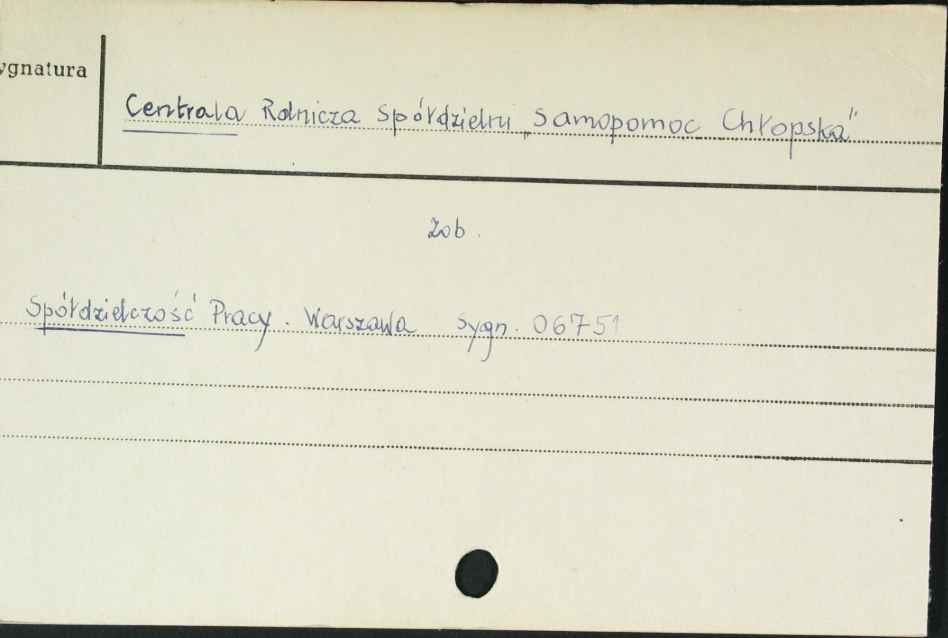 ygnatura
Centrala Rolnicza Spółdzielni „Samopomoc Chłopska"
Zob.
Spółdzielczość Pracy. Warszawa Sygn. 06751